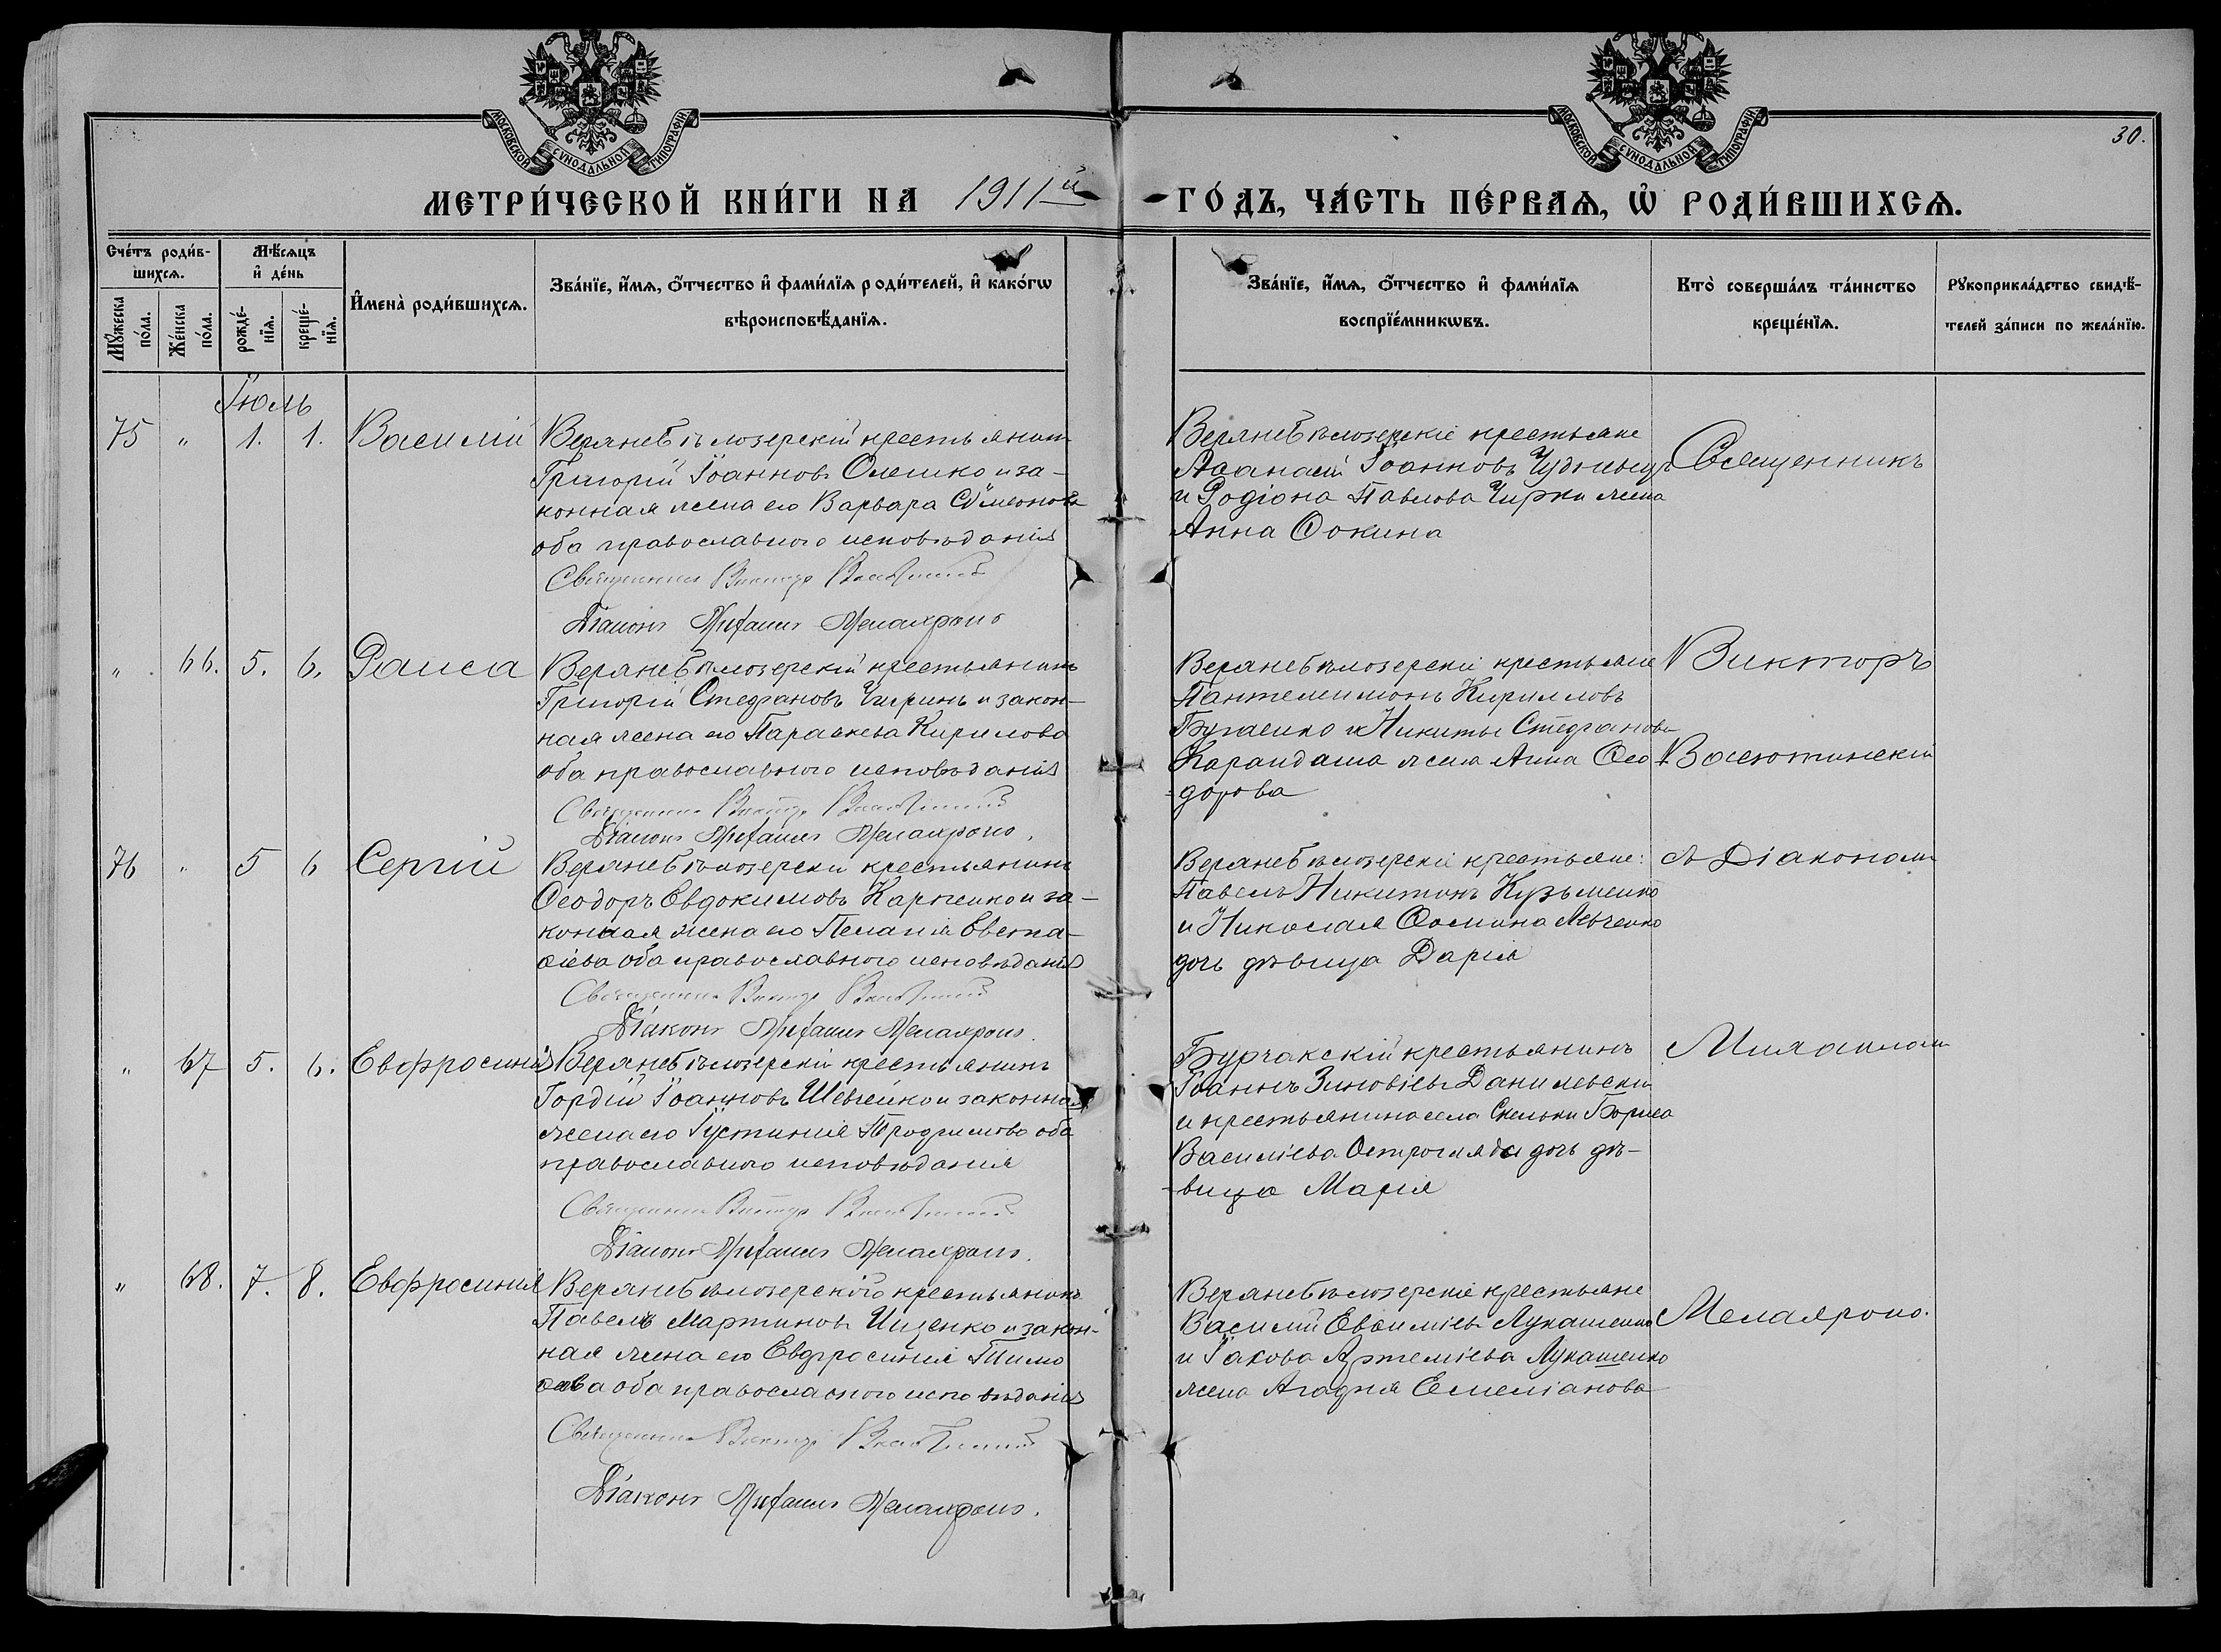 МОСКОВСКОЙ СѴНОДАЛЬНОЙ ТИПОГРАФІИ
МОСКОВСКОЙ СѴНОДАЛЬНОЙ ТИПОГРАФІИ
30.
МЕТРИ́ЧЕСКОЙ КНИ́ГИ НА 1911й ГО́ДЪ, ЧА́СТЬ ПЕ́РВАѦ, Ѡ҆ РОДИ́ВШИХСѦ.
Сче́тъ роди́в-
шихсѧ.
Мѣ́сѧцъ
и҆ де́нь
Мꙋ́жеска
по́ла.
Же́нска
по́ла.
рожде́-
нїѧ.
креще́-
нїѧ.
И҆мена̀ роди́вшихсѧ.
Зва́нїе, и҆́мѧ, ѻ҆́тчество и҆ фами́лїѧ роди́телей, и҆ како́гѡ
вѣроисповѣ́данїѧ.
Зва́нїе, и҆́мѧ, ѻ҆́тчество и҆ фами́лїѧ
воспрїе́мникѡвъ.
Кто̀ соверша́лъ та́инство
креще́нїѧ.
Рꙋкоприкла́дство свидѣ́-
телей за́писи по жела́нїю.
Іюль
75 " 1. 1. Василій
Верхнебѣлозерскій крестьянинъ
Григорій Іоанновъ Олешко и за-
конная жена его Варвара Сѵмеонова
оба православного исповѣданія
Священникъ Викторъ Васютинскій
Діаконъ Михаилъ Мелахроно
Верхнебѣлозерскіе крестьяне
Аѳанасій Іоанновъ
и Родіона Павлова Чирки жена
Анна Ѳокина
Священникъ
" 66. 5. 6. Раиса
Верхнебѣлозерскій крестьянинъ
Григорій Стефановъ Чигринъ и закон-
ная жена его Параскева Кирилова
оба православного исповѣданія
Священникъ Викторъ Васютинскій
Діаконъ Михаилъ Мелахроно.
Верхнебѣлозерскій крестьяне
Пантелеимонъ Кирилловъ
Бугаенко и Никиты Стефанова
Карандаша жена Анна Ѳео
-дорова
Викторъ
Васютинскій
76 " 5 6 Сергій
Верхнебѣлозерскій крестьянинъ
Ѳеодоръ Евдокимовъ Карпенко и за-
конная жена его Пелагія Евста-
ѳіева оба православного исповѣданія
Священникъ Викторъ Васютинскій
Діаконъ Михаилъ Мелахроно.
Верхнебѣлозерскіе крестьяне:
Павелъ Никитинъ Кузьменко
и Николая Ѳомина Левченко
дочь дѣвица Дарія
съ Діакономъ
" 67 5. 6. Евфросинія
Верхнебѣлозерскій крестьянинъ
Гордій Іоанновъ Шевченко и законная
жена его Іустинія Трофимова оба
православного исповѣданія
Священникъ Викторъ Васютинскій
Діаконъ Михаилъ Мелахроно.
Бурчакскій крестьянинъ
Іоаннъ Зиновіевъ Данилевскій
и крестьянина села Скельки Бориса
Василіева Остроглядa дочь дѣ-
-вица Марія
Михаиломъ
" 68. 7. 8. Евфросинія
Верхнебѣлозерского крестьянинъ
Павелъ Мартиновъ Ищенко и закон-
ная жена его Евфросинія Тимо
ѳеева оба православного исповѣданія
Священникъ Викторъ Васютинскій
Діаконъ Михаилъ Мелахроно.
Верхнебѣлозерскіе крестьяне
Василій Евѳиміевъ Лукашенко
и Іакова Артеміева Лукашенко
жена Агафія Емеліанова
Мелахроно.